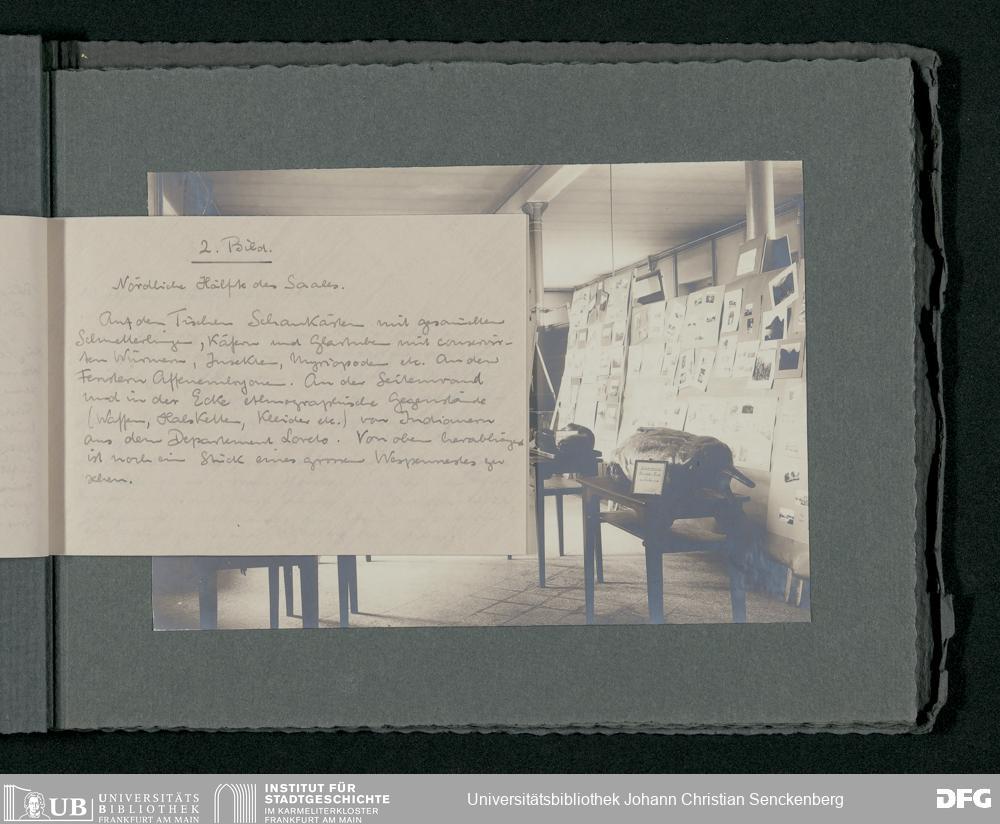 2. Bild.
Nördliche Hälfte des Saales.
Auf den Tischen Schaukästen mit gesamelten
Schmetterlingen, Käfern und Glastuben mit conservir-
ten Würmern, Insekten, Myriopoden etc. An den
Fenstern Affenembryone. An der Seitenwand
und in der Ecke ethnographische Gegenstände
(Waffen, Halskette, Kleider etc.) von Indianern
aus dem Departement Loreto. Von oben herabhängend
ist noch ein Stück eines grossen Wespennestes zu
sehen.
UB
UNIVERSITÄTS
BIBLIOTHEK
FRANKFURT AM MAIN
INSTITUT FÜR
STADTGESCHICHTE
IM KARMELITERKLOSTER
FRANKFURT AM MAIN
Universitätsbibliothek Johann Christian Senckenberg
DFG